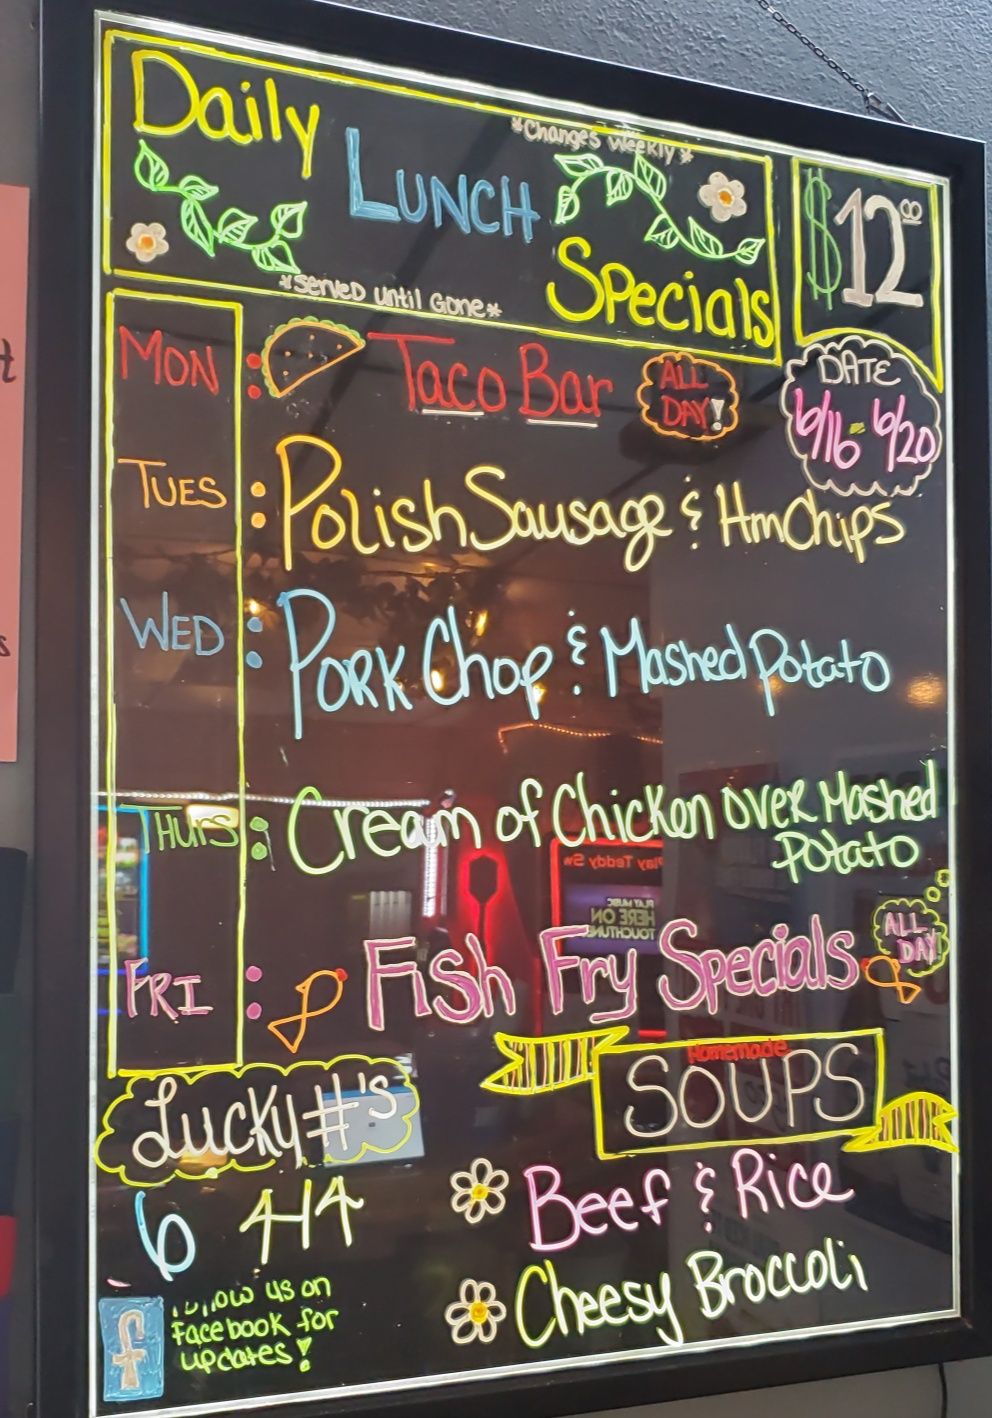 Daily
*Changes Weekly*
LUNCH
Specials
*Served Until Gone*
$12.00
DATE
6/16-6/20
MON : Taco Bar ALL DAY!
TUES : Polish Sausage & Hm Chips
WED : Pork Chop & Mashed Potato
THURS : Cream of Chicken over Mashed
Potato
FRI : Fish Fry Specials ALL DAY!
Lucky #'s
6 414
Homemade
SOUPS
Beef & Rice
Cheesy Broccoli
f Follow us on
Facebook for
updates!
Play Teddy Sw
PLAY MUSIC
HERE ON
TOUCHTUNES